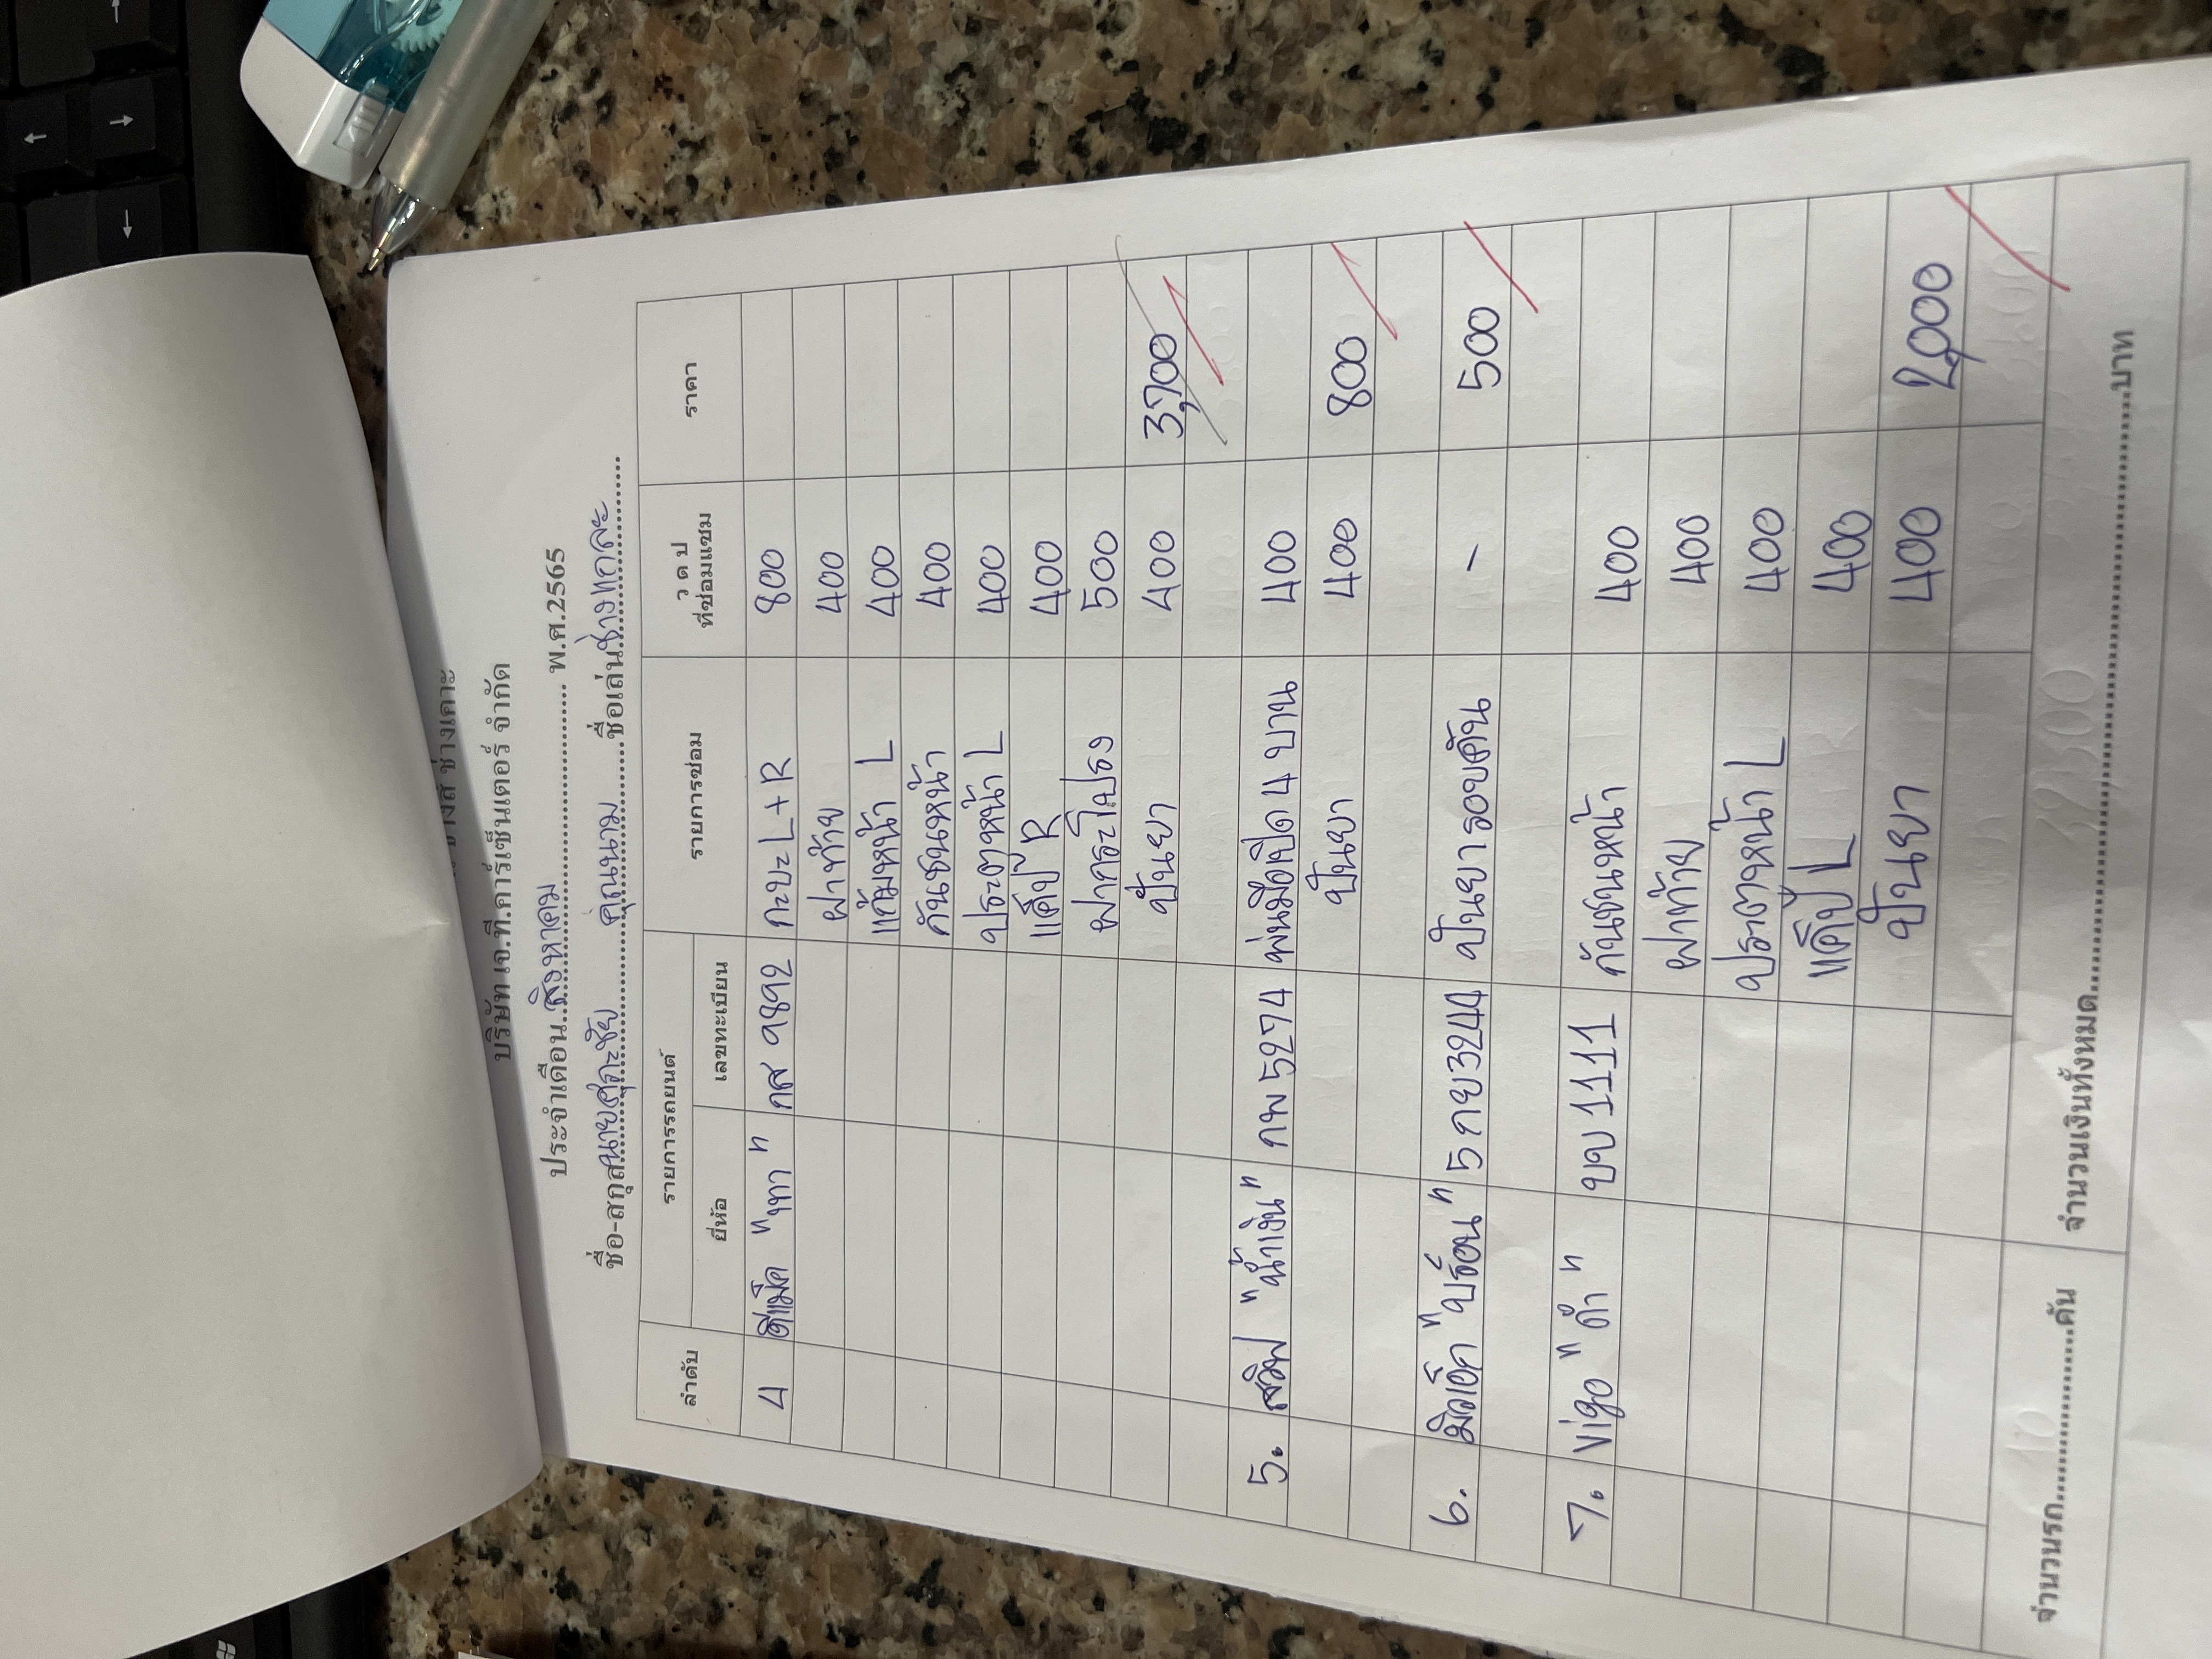 ช่างสี ช่างเคาะ
บริษัท เจ.ที.คาร์เซ็นเตอร์ จำกัด
ประจำเดือน สิงหาคม พ.ศ.2565
ชื่อ-สกุล คุณนาม ชื่อเล่น ช่างแกละ
ลำดับ รายการรถยนต์ รายการซ่อม ว ด ป ที่ซ่อมแซม ราคา
ยี่ห้อ เลขทะเบียน
4 ดีแม็ค "เทา" กส 9892 กะบะ L+R 800
ฝาท้าย 400
แก้มหน้า L 400
กันชนหน้า 400
ประตูหน้า L 400
แค็ป R 400
ฝากระโปรง 500
ปั่นยา 400 3,700
5. สวิฟ "น้ำเงิน" กพ 5274 พ่นมือเปิด 4 บาน 400
ปั่นยา 400 800
6. มิลเอ็ก "บรอน" 5 กย 3244 ปั่นยารอบคัน - 500
7. Vigo "ดำ" บบ 1111 กันชนหน้า 400
ฝาท้าย 400
ประตูหน้า L 400
แค็ป L 400
ปั่นยา 400 2,000
จำนวนรถ คัน จำนวนเงินทั้งหมด บาท